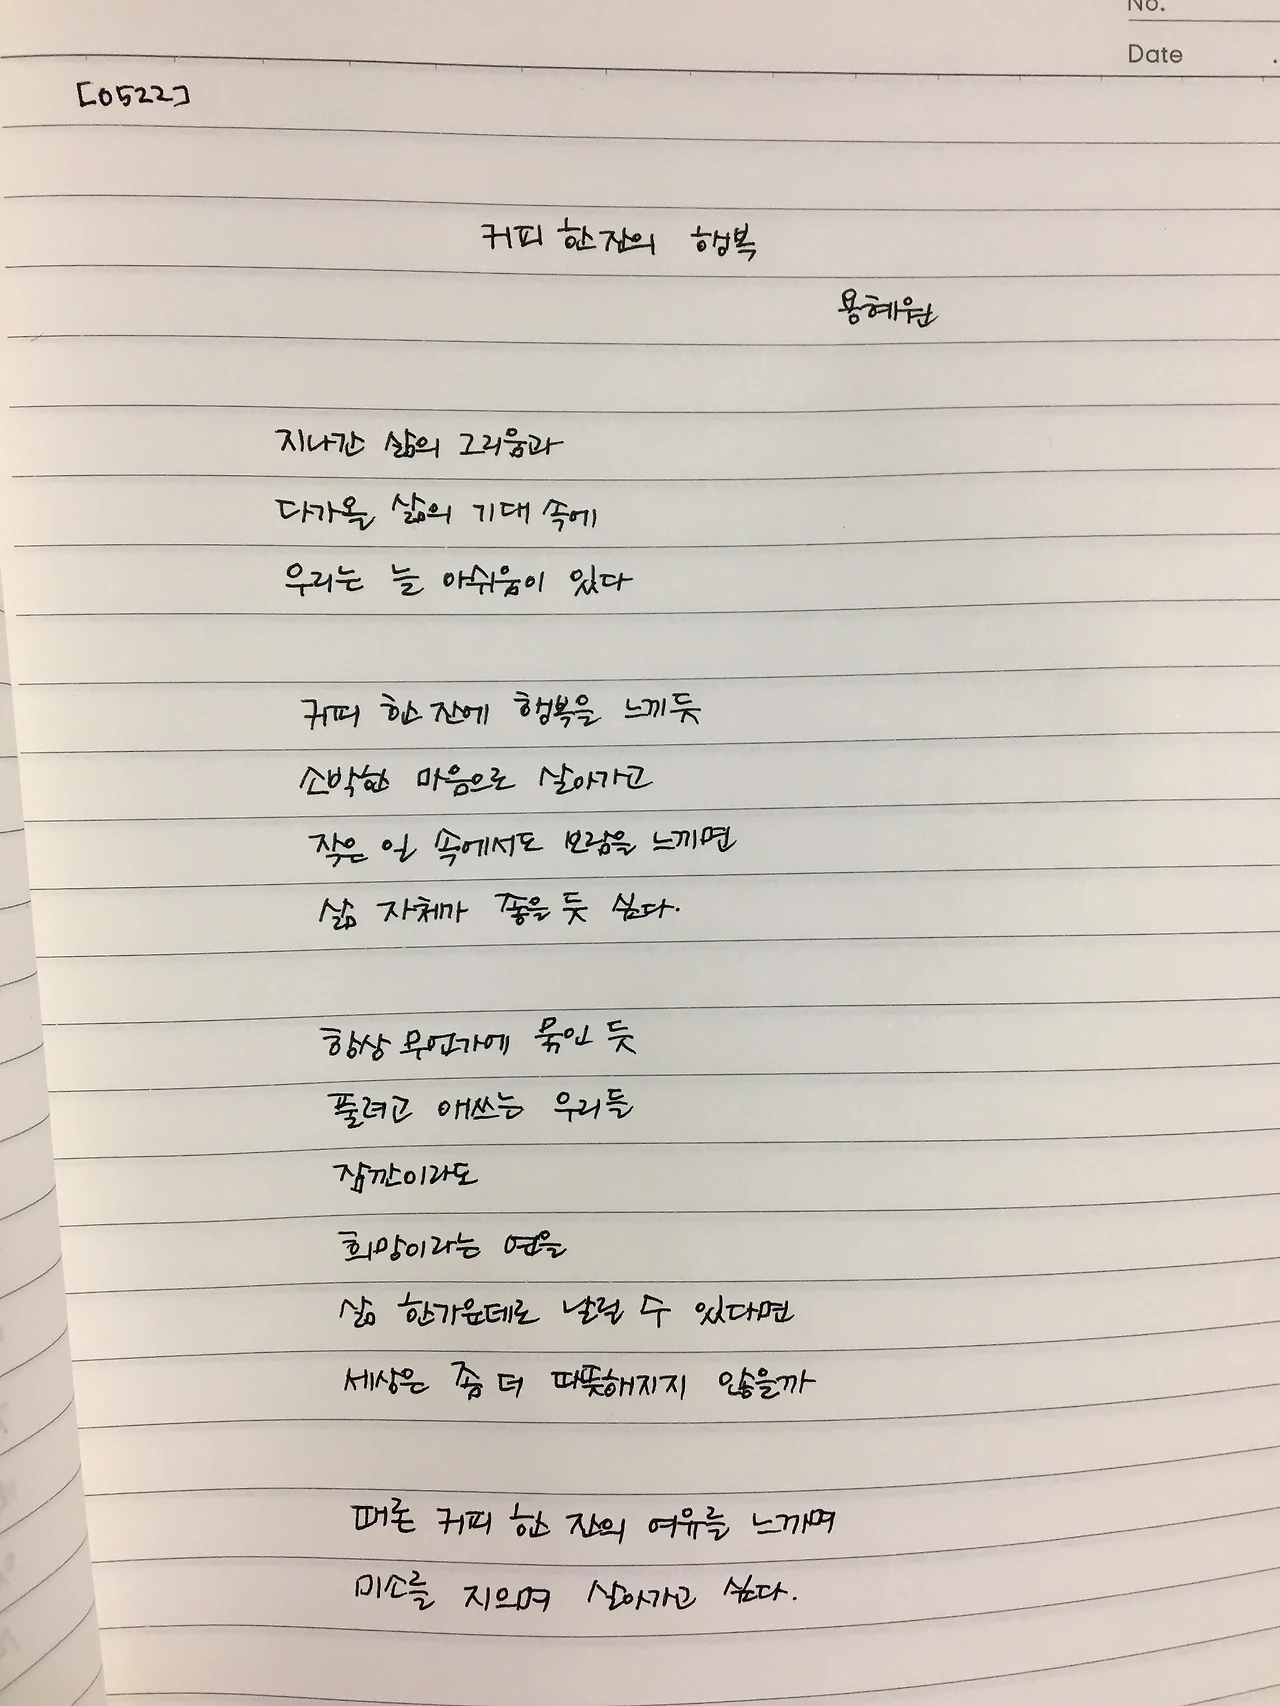 No.
Date
[0522]
커피 한 잔의 행복
용혜원
지나간 삶의 그리움과
다가올 삶의 기대 속에
우리는 늘 아쉬움이 있다
커피 한 잔에 행복을 느끼듯
소박한 마음으로 살아가고
작은 일 속에서도 보람을 느끼면
삶 자체가 좋을 듯 싶다.
항상 무언가에 묶인 듯
풀려고 애쓰는 우리들
잠깐이라도
희망이라는 연을
삶 한가운데로 날릴 수 있다면
세상은 좀 더 따뜻해지지 않을까
때론 커피 한 잔의 여유를 느끼며
미소를 지으며 살아가고 싶다.